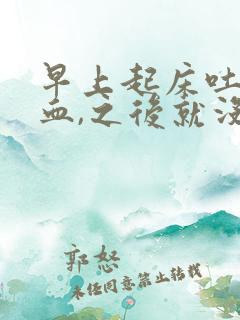 早上起床吐
血,之後就沒
郭怒
未任同意禁止转载